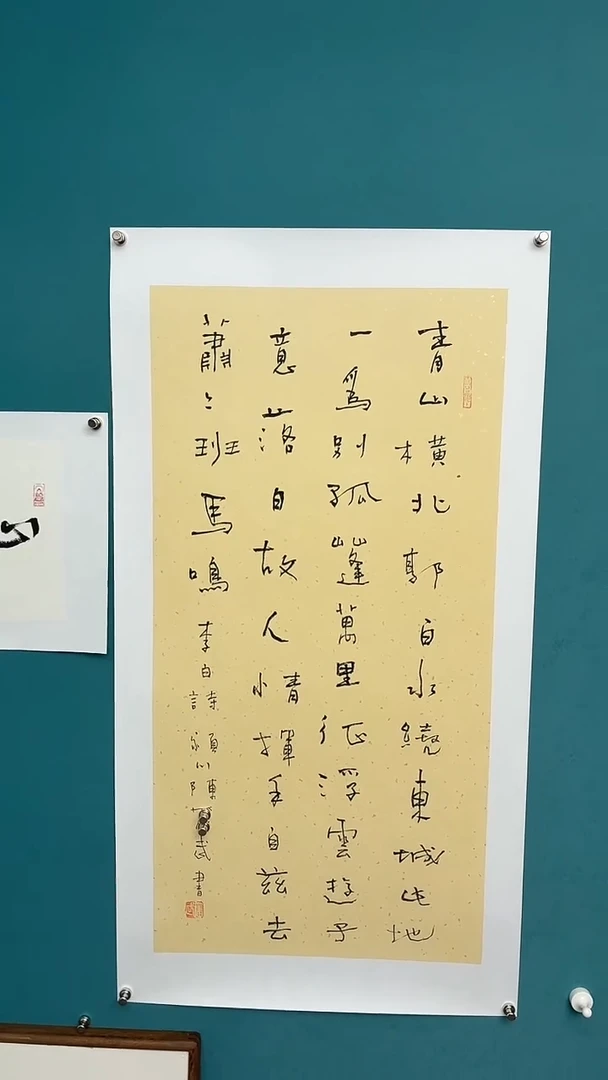 青山橫北郭白水繞東城此地
一爲別孤蓬萬里征浮雲遊子
意落日故人情揮手自茲去
蕭々班馬鳴
李白詩 武書